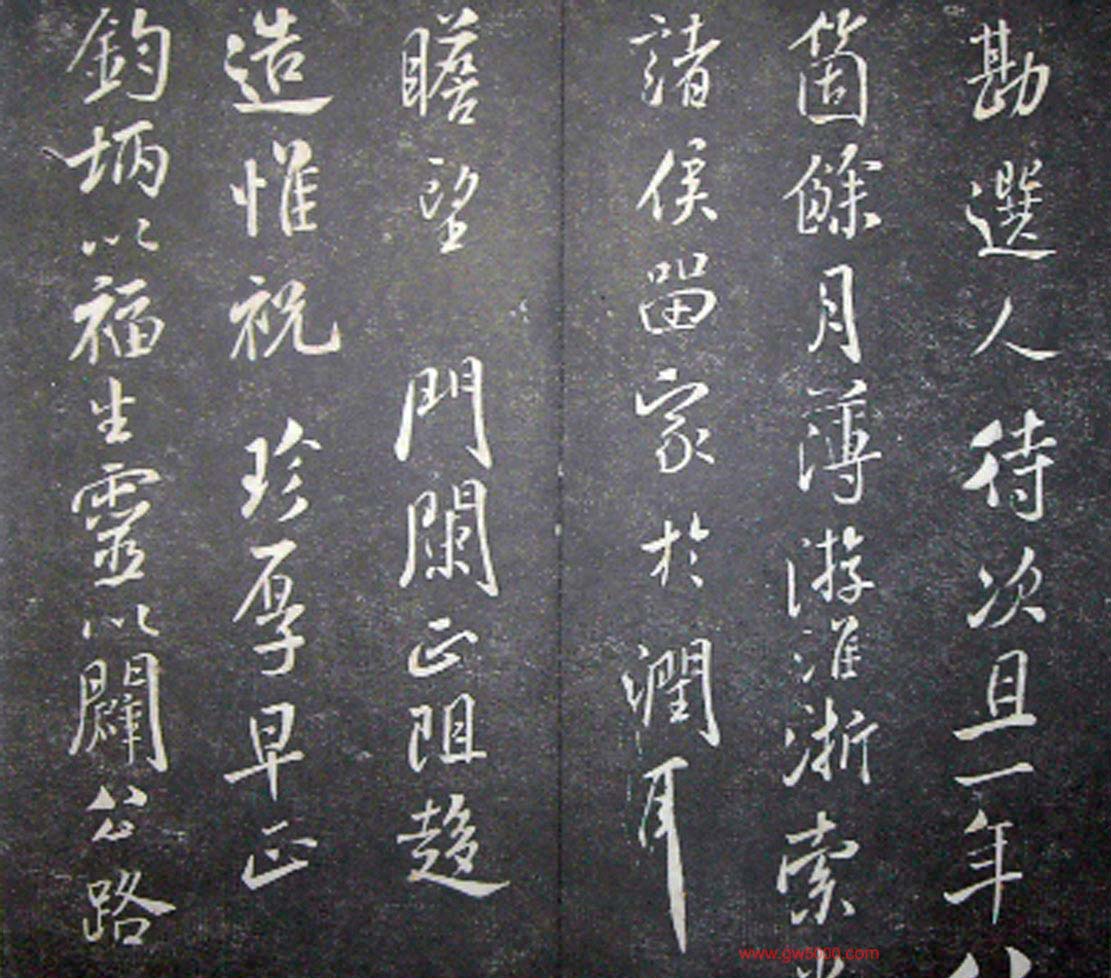 勘選人待次且一年
箇餘月薄游淮浙索
諸侯畱家於潤耳
瞻望門闌正阻趍
造惟祝珍厚早正
鈞炳以福生靈以闢公路
www.gw8000.com